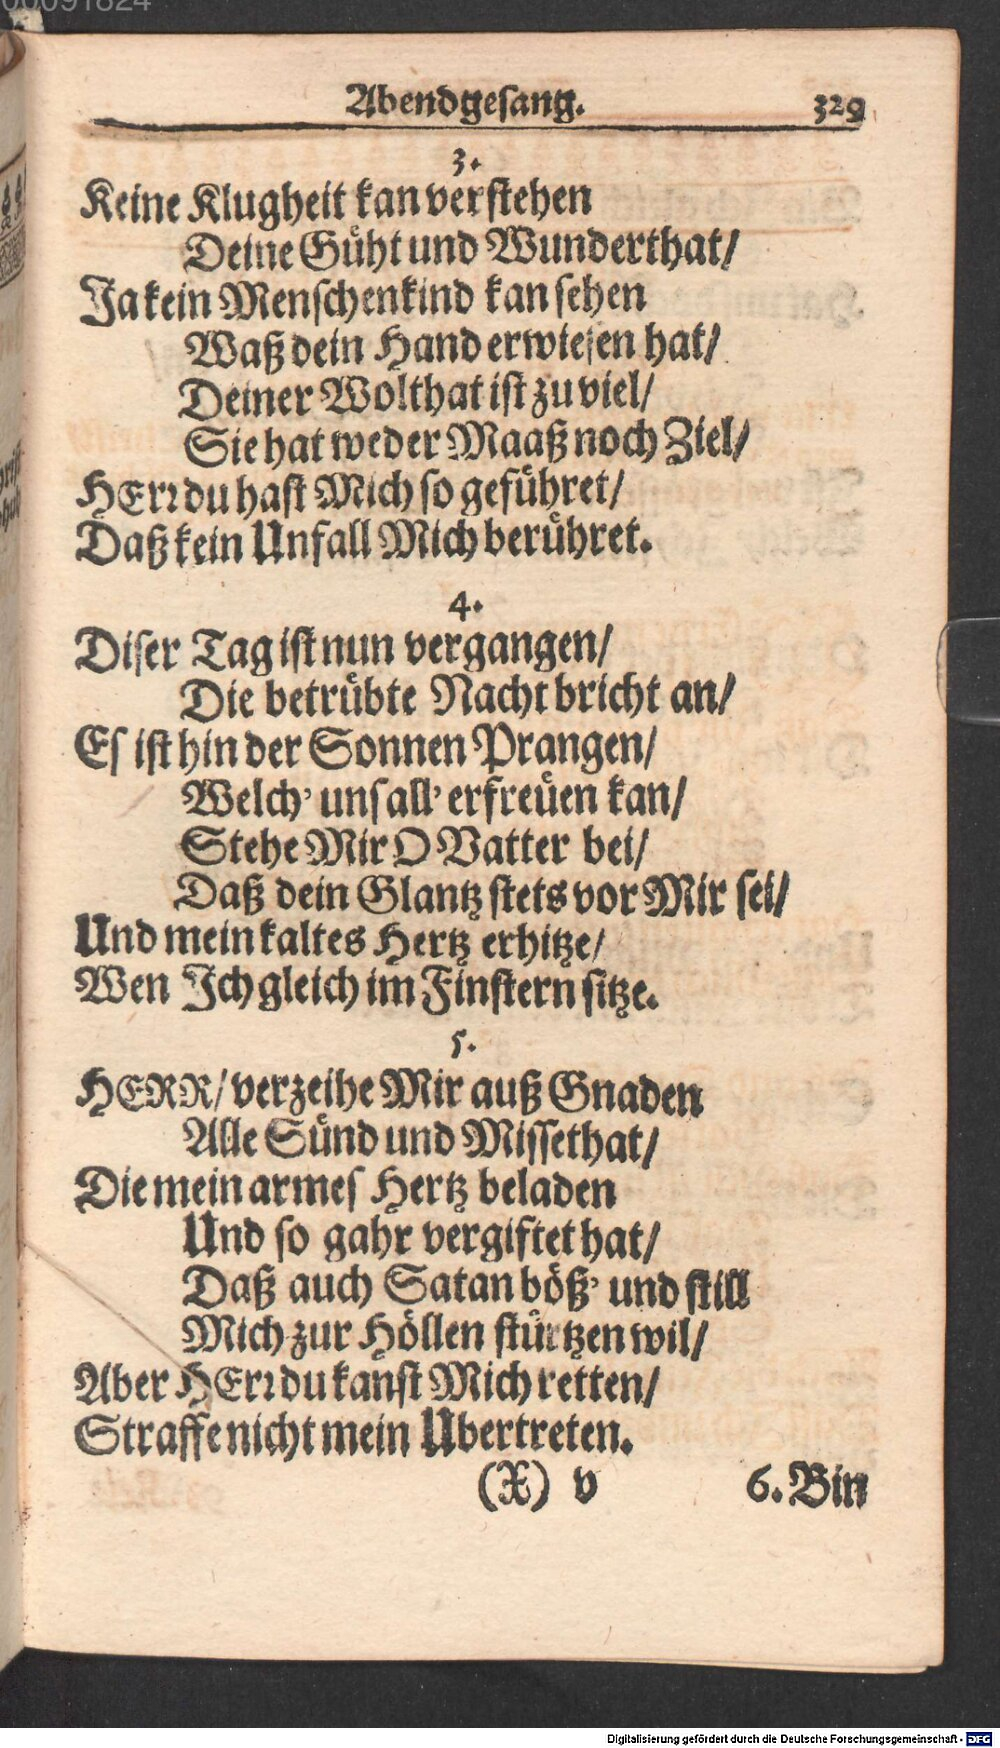 00091824
Abendgesang. 329
3.
Keine Klugheit kan verstehen
Deine Güht und Wunderthat/
Ja kein Menschenkind kan sehen
Waß dein Hand erwiesen hat/
Deiner Wolthat ist zu viel/
Sie hat weder Maaß noch Ziel/
HErr du hast Mich so geführet/
Daß kein Unfall Mich berühret.
4.
Diser Tag ist nun vergangen/
Die betrübte Nacht bricht an/
Es ist hin der Sonnen Prangen/
Welch' uns all' erfreüen kan/
Stehe Mir O Vatter bei/
Daß dein Glantz stets vor Mir sei/
Und mein kaltes Hertz erhitze/
Wen Ich gleich im Finstern sitze.
5.
HERR/ verzeihe Mir auß Gnaden
Alle Sünd und Missethat/
Die mein armes Hertz beladen
Und so gahr vergiftet hat/
Daß auch Satan böß' und still
Mich zur Höllen stürtzen wil/
Aber HErr du kanst Mich retten/
Straffe nicht mein Ubertreten.
(X) v 6. Bin
Digitalisierung gefördert durch die Deutsche Forschungsgemeinschaft - DFG